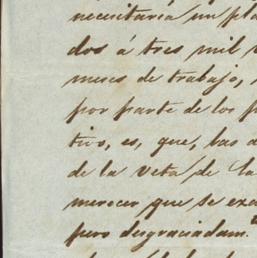 necesitaria un pla
dos á tres mil
meses de trabajo,
por parte de los p
tivo, es, que, las
de la veta de la
merecer que se exa
pero desgraciadam.